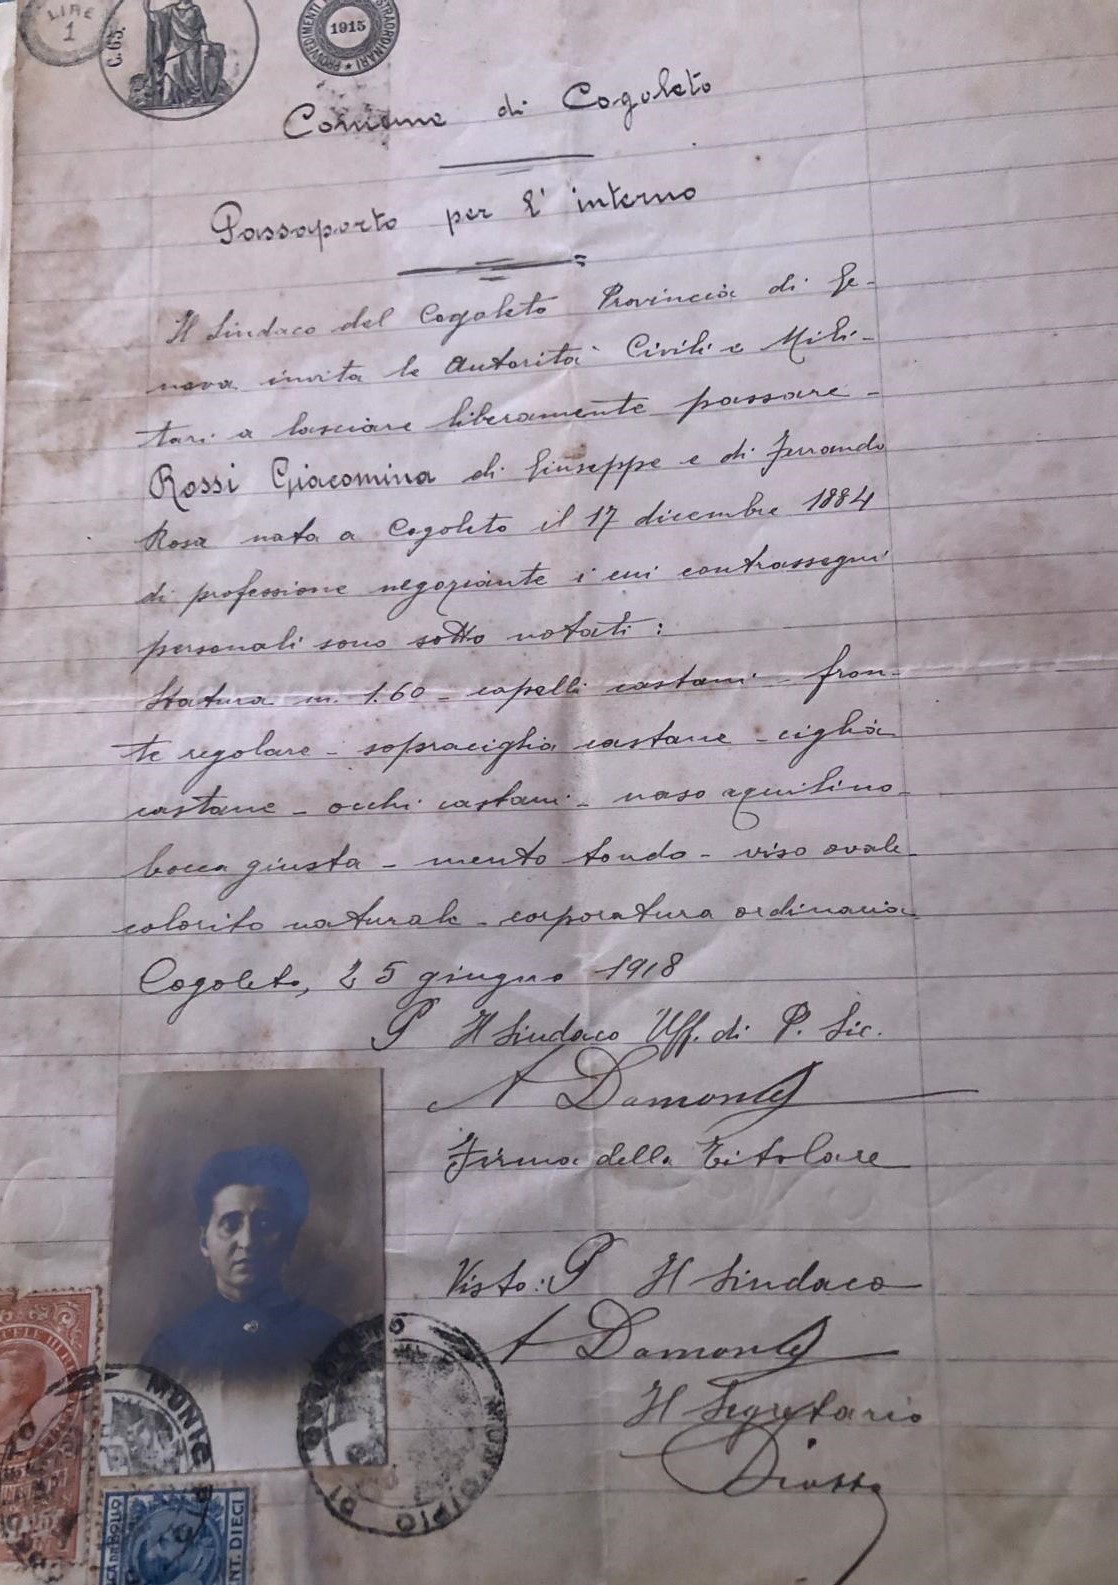 LIRE
1
C. 65.
PROVVEDIMENTI STRAORDINARI
1915
Comune di Cogoleto
Passaporto per l' interno
Il Sindaco del Cogoleto Provincia di Ge-
nova invita le Autorità Civili e Mili-
tari a lasciare liberamente passare -
Rossi Giacomina di Giuseppe e di Ferrando
Rosa nata a Cogoleto il 17 dicembre 1884
di professione negoziante i cui contrassegni
personali sono sotto notati:
Statura m. 1.60 - capelli castani - fron-
te regolare - sopraciglia castane - ciglia
castane - occhi castani - naso aquilino -
bocca giusta - mento tondo - viso ovale -
colorito naturale - corporatura ordinaria -
Cogoleto, 25 giugno 1918
P Il Sindaco Uff. di P. Sic.
A Damonte
Firma della Titolare
Visto: P Il Sindaco
A Damonte
Il Segretario
MUNIC
MUNICIPIO DI
CENT. DIECI